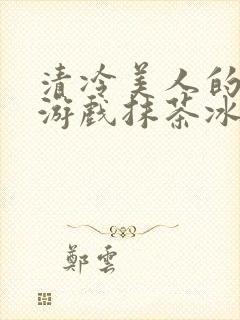 清冷美人的
游戏抹茶冰
鄭雲